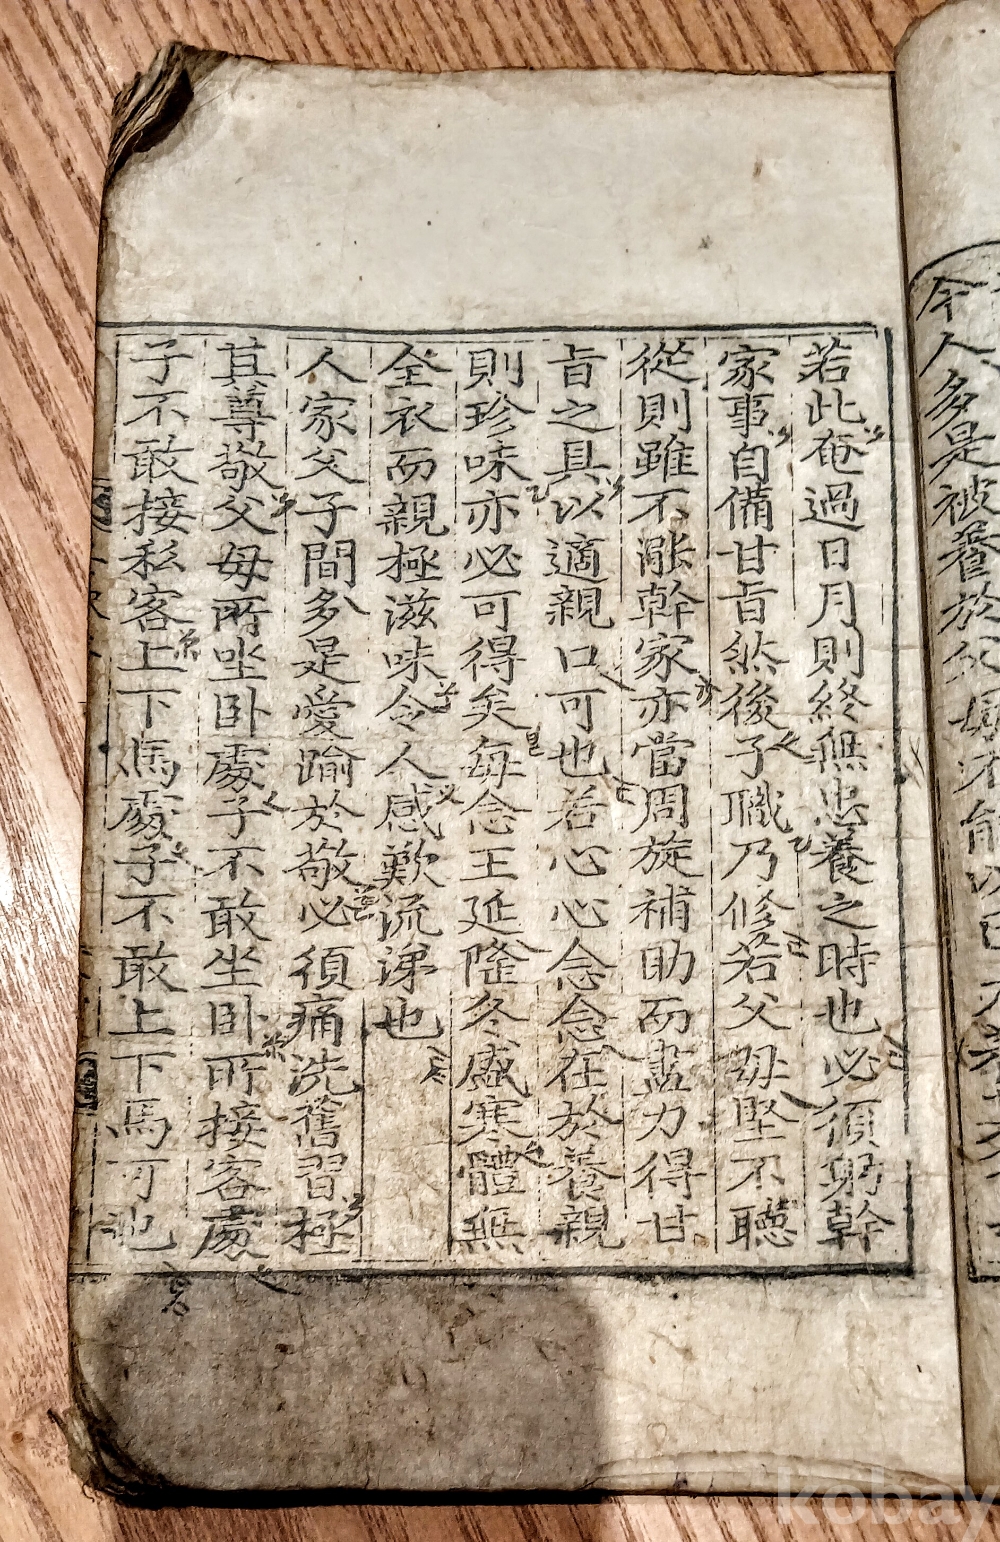 今人多是被養於父母不能以己力養
若此奄過日月則終無忠養之時也必須躬幹
家事自備甘旨然後子職乃修若父母堅不聽
從則雖不能幹家亦當周旋補助而盡力得甘
旨之具以適親口可也若心心念念在於養親
則珍味亦必可得矣每念王延隆冬盛寒體無
全衣而親極滋味令人感歎流涕也
人家父子間多是愛踰於敬必須痛洗舊習極
其尊敬父母所坐卧處子不敢坐卧所接客處
子不敢接私客上下馬處子不敢上下馬可也
kobay